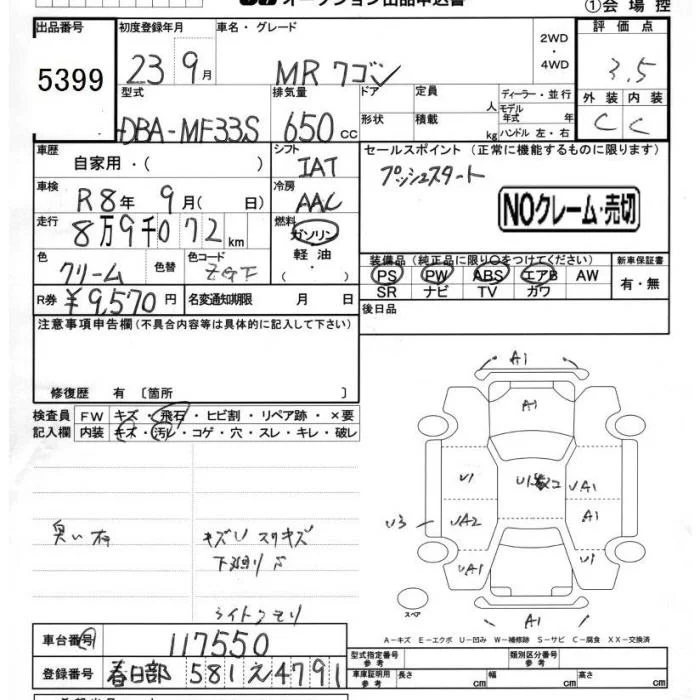 オークション出品申込書
①会場控
出品番号 初度登録年月 車名・グレード 2WD・4WD 評価点
5399 23 9月 MRワゴン 3.5
型式 排気量 ドア 定員 人 ディーラー・並行 外装 内装
DBA-MF33S 650cc 形状 積載 kg モデル年式 年 ハンドル 左・右 C C
車歴 自家用・( ) シフト IAT セールスポイント (正常に機能するものに限ります)
プッシュスタート
車検 R8年 9月( 日) 冷房 AAC
NOクレーム・売切
走行 8万9千072km 燃料 ガソリン
軽油・
色 クリーム 色替 色コード ZGF
装備品 (純正品に限り○をつけてください) 新車保証書
PS PW ABS エアB AW 有・無
SR ナビ TV カワ
R券 ¥9,570円 名変通知期限 月 日
後日品
注意事項申告欄(不具合内容等は具体的に記入して下さい)
修復歴 有 〔箇所 〕
検査員 FW キズ・飛石・ヒビ割・リペア跡・×要
記入欄 内装 キズ・汚レ・コゲ・穴・スレ・キレ・破レ
A1
A1
U1 UA1
U3 UA2 A1
UA1 U1
A1
臭い有 キズU スリキズ
下廻りS
ライトクモリ
スペア
A-キズ E-エクボ U-凹み W-補修跡 S-サビ C-腐食 XX-交換済
車台番号 117550
型式指定番号 参考 類別区分番号 参考
登録番号 春日部 581 え4791
車庫証明用 参考 長さ cm 幅 cm 高さ cm